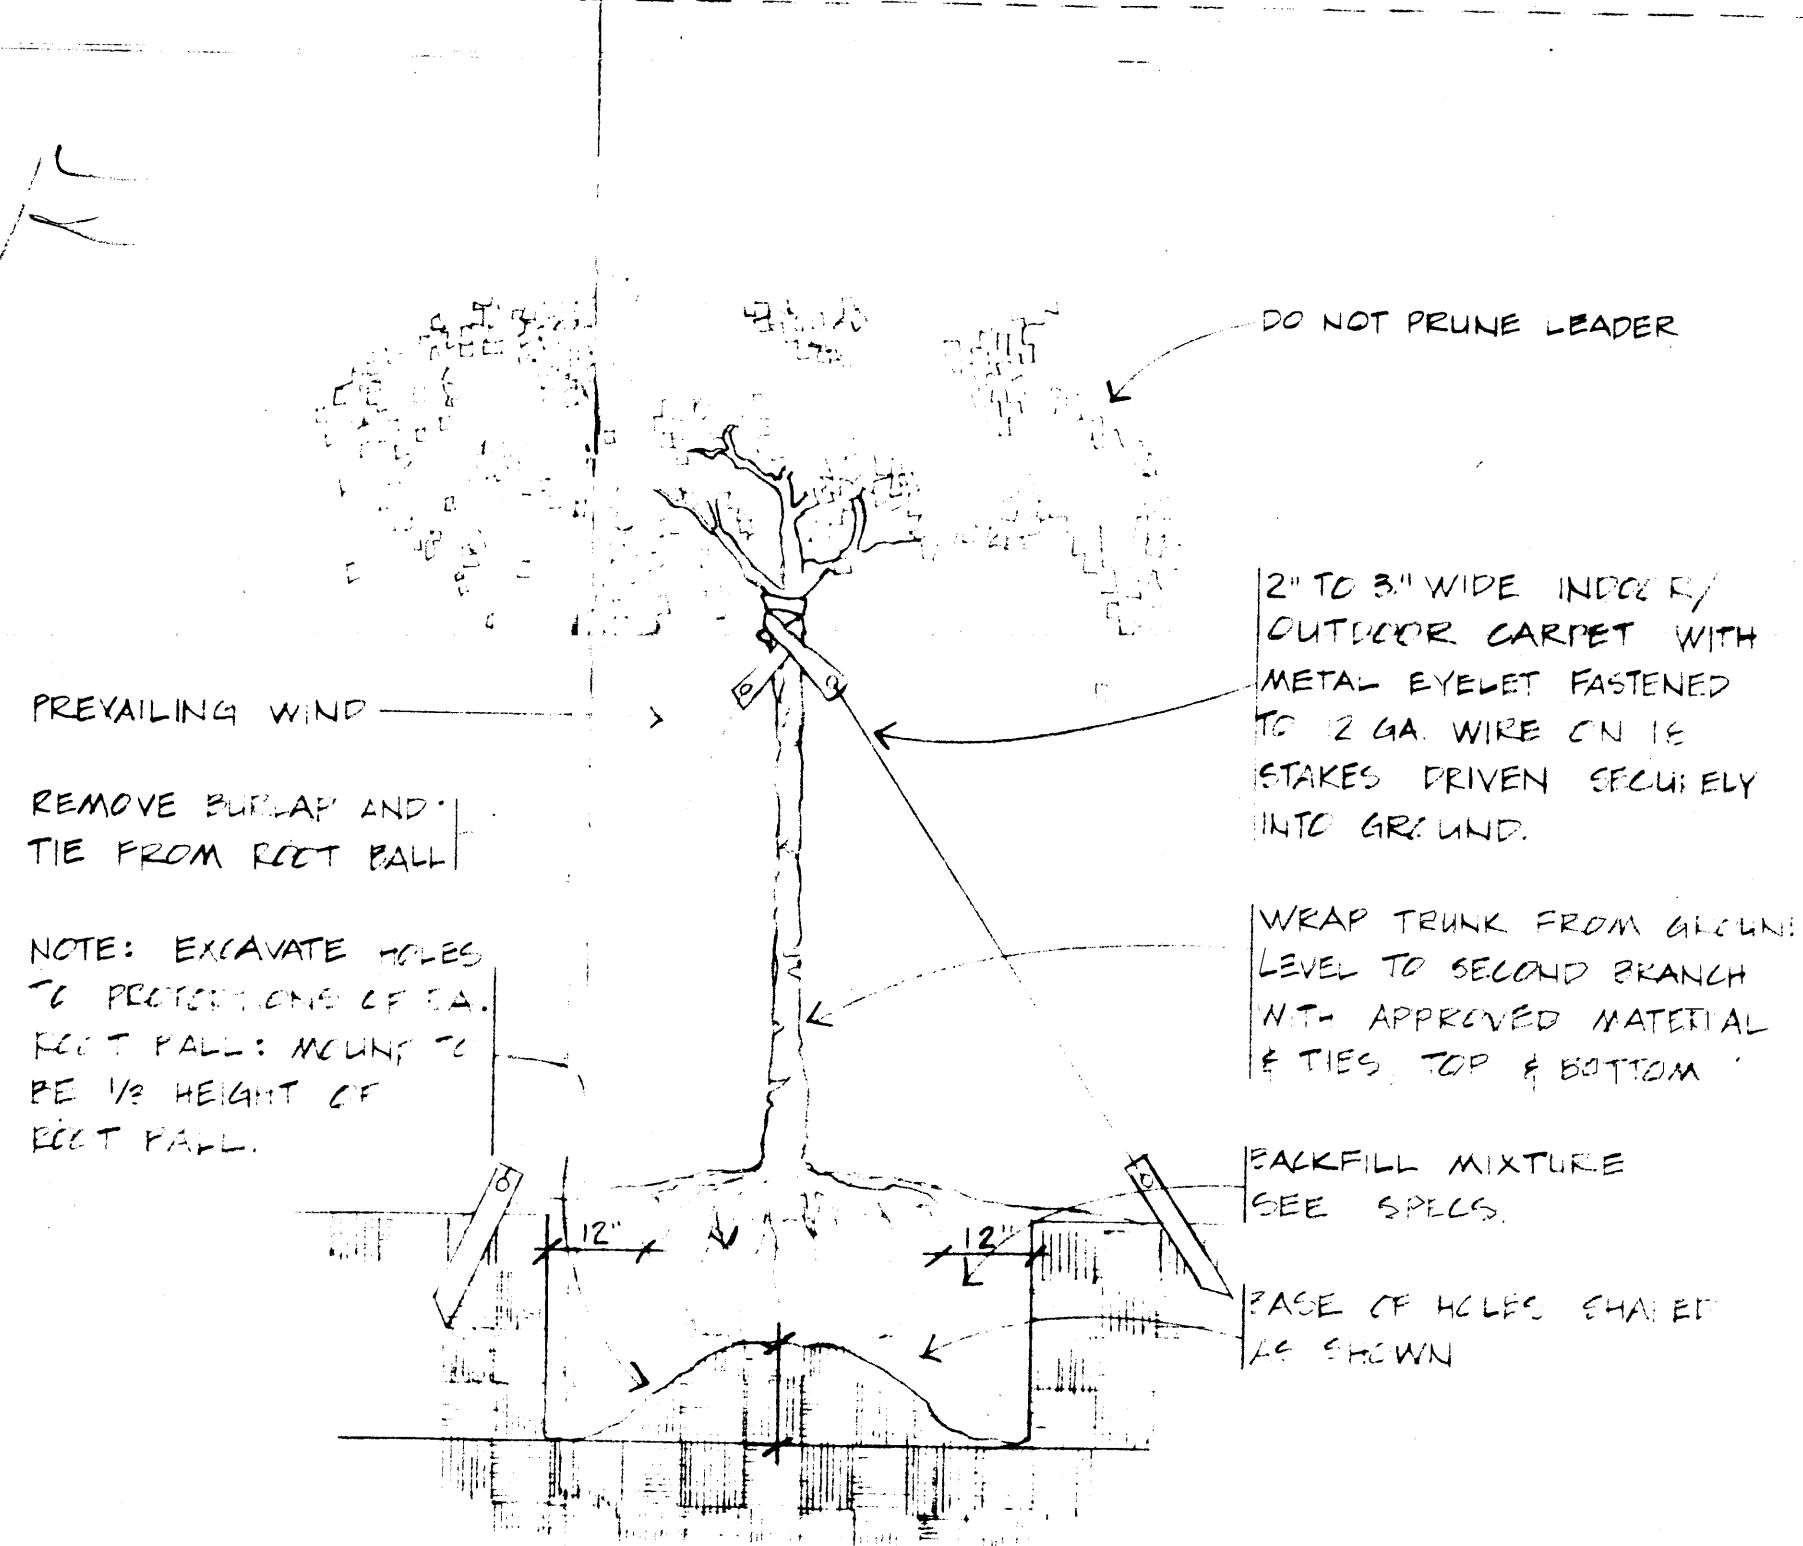 DO NOT PRUNE LEADER
2" TO 3" WIDE INDOOR/
OUTDOOR CARPET WITH
METAL EYELET FASTENED
TO 12 GA. WIRE ON 18
STAKES DRIVEN SECURELY
INTO GROUND.
PREVAILING WIND
REMOVE BURLAP AND
TIE FROM ROOT BALL
NOTE: EXCAVATE HOLES
TO PROPORTIONS OF EA.
ROOT BALL: MOUND TO
BE 1/3 HEIGHT OF
ROOT BALL.
WRAP TRUNK FROM GROUND
LEVEL TO SECOND BRANCH
WITH APPROVED MATERIAL
& TIES, TOP & BOTTOM
BACKFILL MIXTURE
SEE SPECS.
12"
12"
BASE OF HOLES SHAPED
AS SHOWN